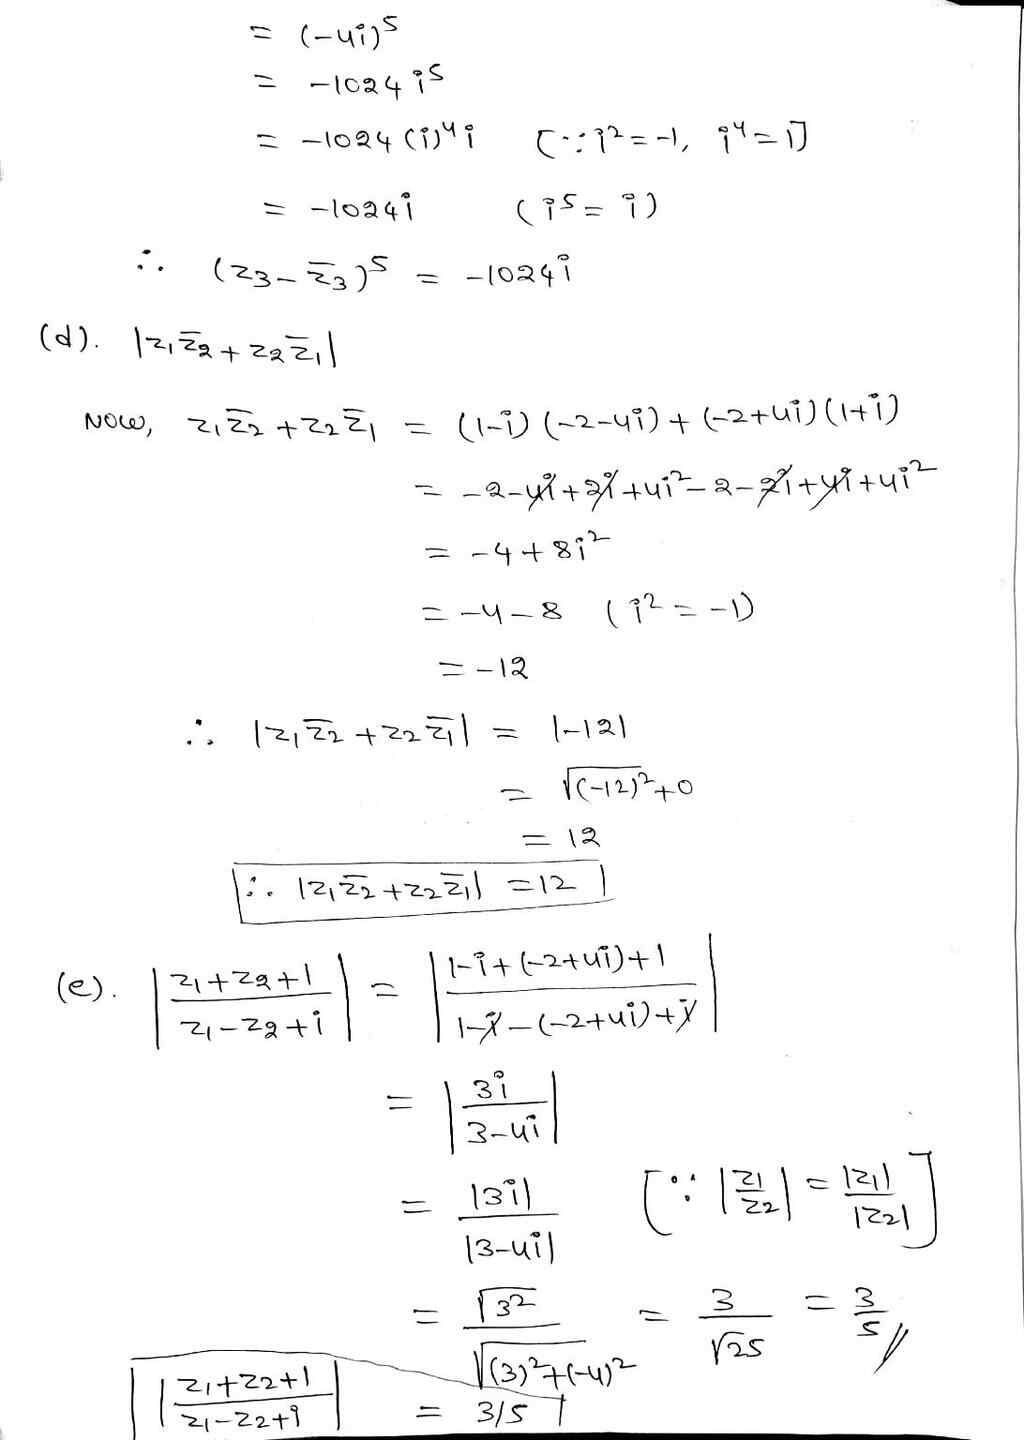 = (-4i)⁵
= -1024 i⁵
= -1024 (i)⁴ i [∵ i² = -1, i⁴ = 1]
= -1024i (i⁵ = i)
∴ (z₃ - z̄₃)⁵ = -1024i
(d). |z₁z̄₂ + z₂z̄₁|
Now, z₁z̄₂ + z₂z̄₁ = (1-i)(-2-4i) + (-2+4i)(1+i)
= -2-4i+2i+4i²-2-2i+4i+4i²
= -4+8i²
= -4-8 (i² = -1)
= -12
∴ |z₁z̄₂ + z₂z̄₁| = |-12|
= √(-12)²+0
= 12
∴ |z₁z̄₂ + z₂z̄₁| = 12
(e). |z₁+z₂+1 / z₁-z₂+i| = |1-i+(-2+4i)+1 / 1-i-(-2+4i)+i|
= |3i / 3-4i|
= |3i| / |3-4i| [∵ |z₁/z₂| = |z₁|/|z₂|]
= √3² / √(3)²+(-4)² = 3/√25 = 3/5 //
|z₁+z₂+1 / z₁-z₂+i| = 3/5